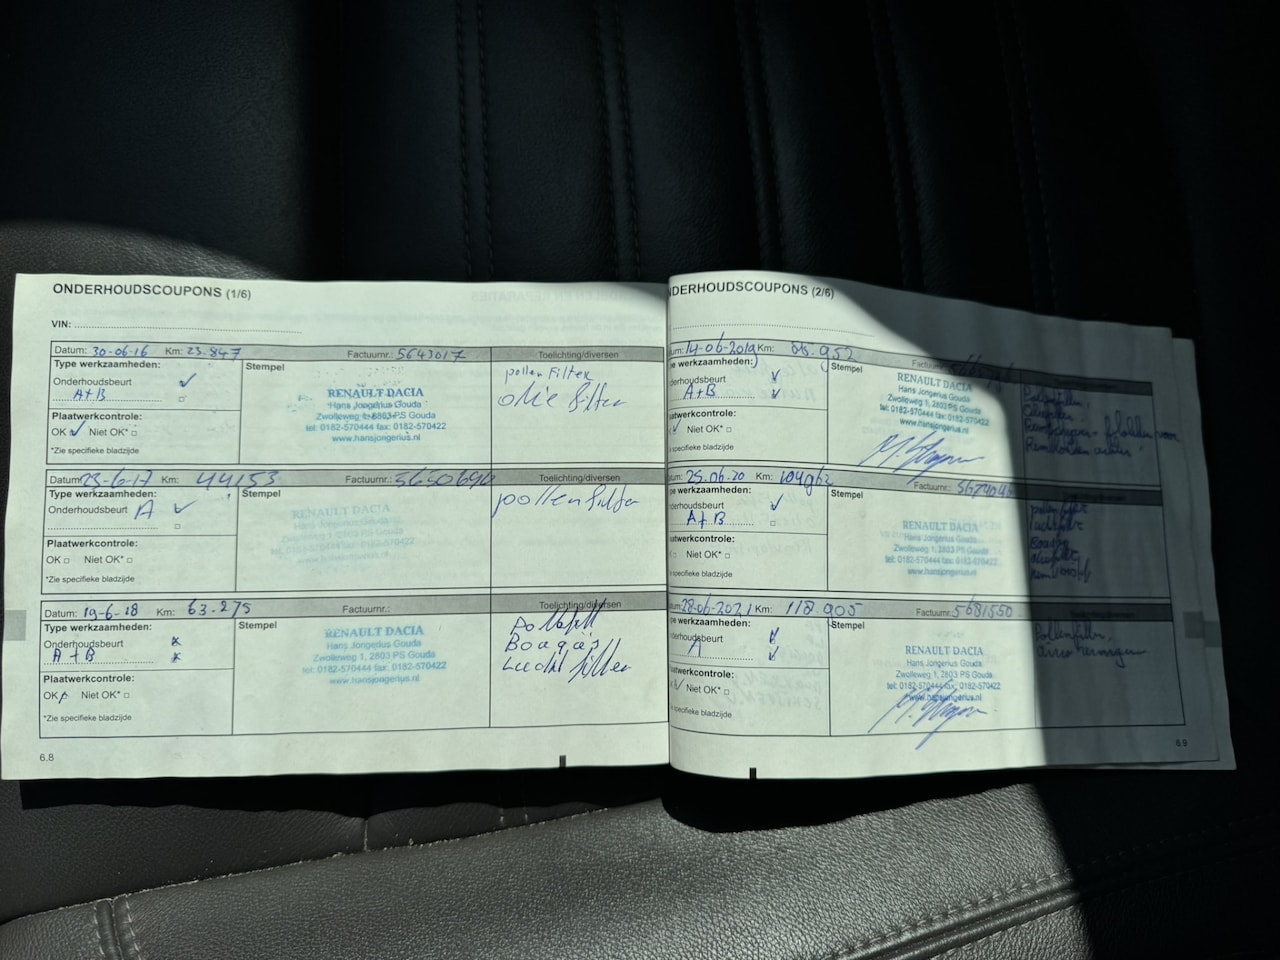 ONDERHOUDSCOUPONS (1/6)
VIN:
Datum: 30-06-16 Km: 23.847 Factuurnr.: 5643017 Toelichting/diversen
Type werkzaamheden:
Onderhoudsbeurt
A+B
Plaatwerkcontrole:
OK Niet OK*
*Zie specifieke bladzijde
Stempel
RENAULT DACIA
Hans Jongerius Gouda
Zwolleweg 1, 2803 PS Gouda
tel: 0182-570444 fax: 0182-570422
www.hansjongerius.nl
pollen Filter
olie filter
Datum: 23-6-17 Km: 44153 Factuurnr.: Toelichting/diversen
Type werkzaamheden:
Onderhoudsbeurt A
Plaatwerkcontrole:
OK Niet OK*
*Zie specifieke bladzijde
Stempel
RENAULT DACIA
Hans Jongerius Gouda
Zwolleweg 1, 2803 PS Gouda
tel: 0182-570444 fax: 0182-570422
www.hansjongerius.nl
pollenfilter
Datum: 19-6-18 Km: 63.275 Factuurnr.: Toelichting/diversen
Type werkzaamheden:
Onderhoudsbeurt
A+B
Plaatwerkcontrole:
OK Niet OK*
*Zie specifieke bladzijde
Stempel
RENAULT DACIA
Hans Jongerius Gouda
Zwolleweg 1, 2803 PS Gouda
tel: 0182-570444 fax: 0182-570422
www.hansjongerius.nl
Bougies
Lucht filter
6.8
NDERHOUDSCOUPONS (2/6)
um: 14-06-2019 Km: Factuurnr.:
pe werkzaamheden:
derhoudsbeurt
A+B
aatwerkcontrole:
Niet OK*
e specifieke bladzijde
Stempel
RENAULT DACIA
Hans Jongerius Gouda
Zwolleweg 1, 2803 PS Gouda
tel: 0182-570444 fax: 0182-570422
www.hansjongerius.nl
um: 25.06.20 Km: 104962 Factuurnr.:
pe werkzaamheden:
derhoudsbeurt
A+B
aatwerkcontrole:
Niet OK*
e specifieke bladzijde
Stempel
RENAULT DACIA
Hans Jongerius Gouda
Zwolleweg 1, 2803 PS Gouda
tel: 0182-570444 fax: 0182-570422
www.hansjongerius.nl
pollenfilter
Bougies
um: 28-06-2021 Km: 118.905 Factuurnr.: 5681550 Toelichting/diversen
pe werkzaamheden:
derhoudsbeurt
A
aatwerkcontrole:
Niet OK*
e specifieke bladzijde
Stempel
RENAULT DACIA
Hans Jongerius Gouda
Zwolleweg 1, 2803 PS Gouda
tel: 0182-570444 fax: 0182-570422
www.hansjongerius.nl
Pollenfilter,
6.9